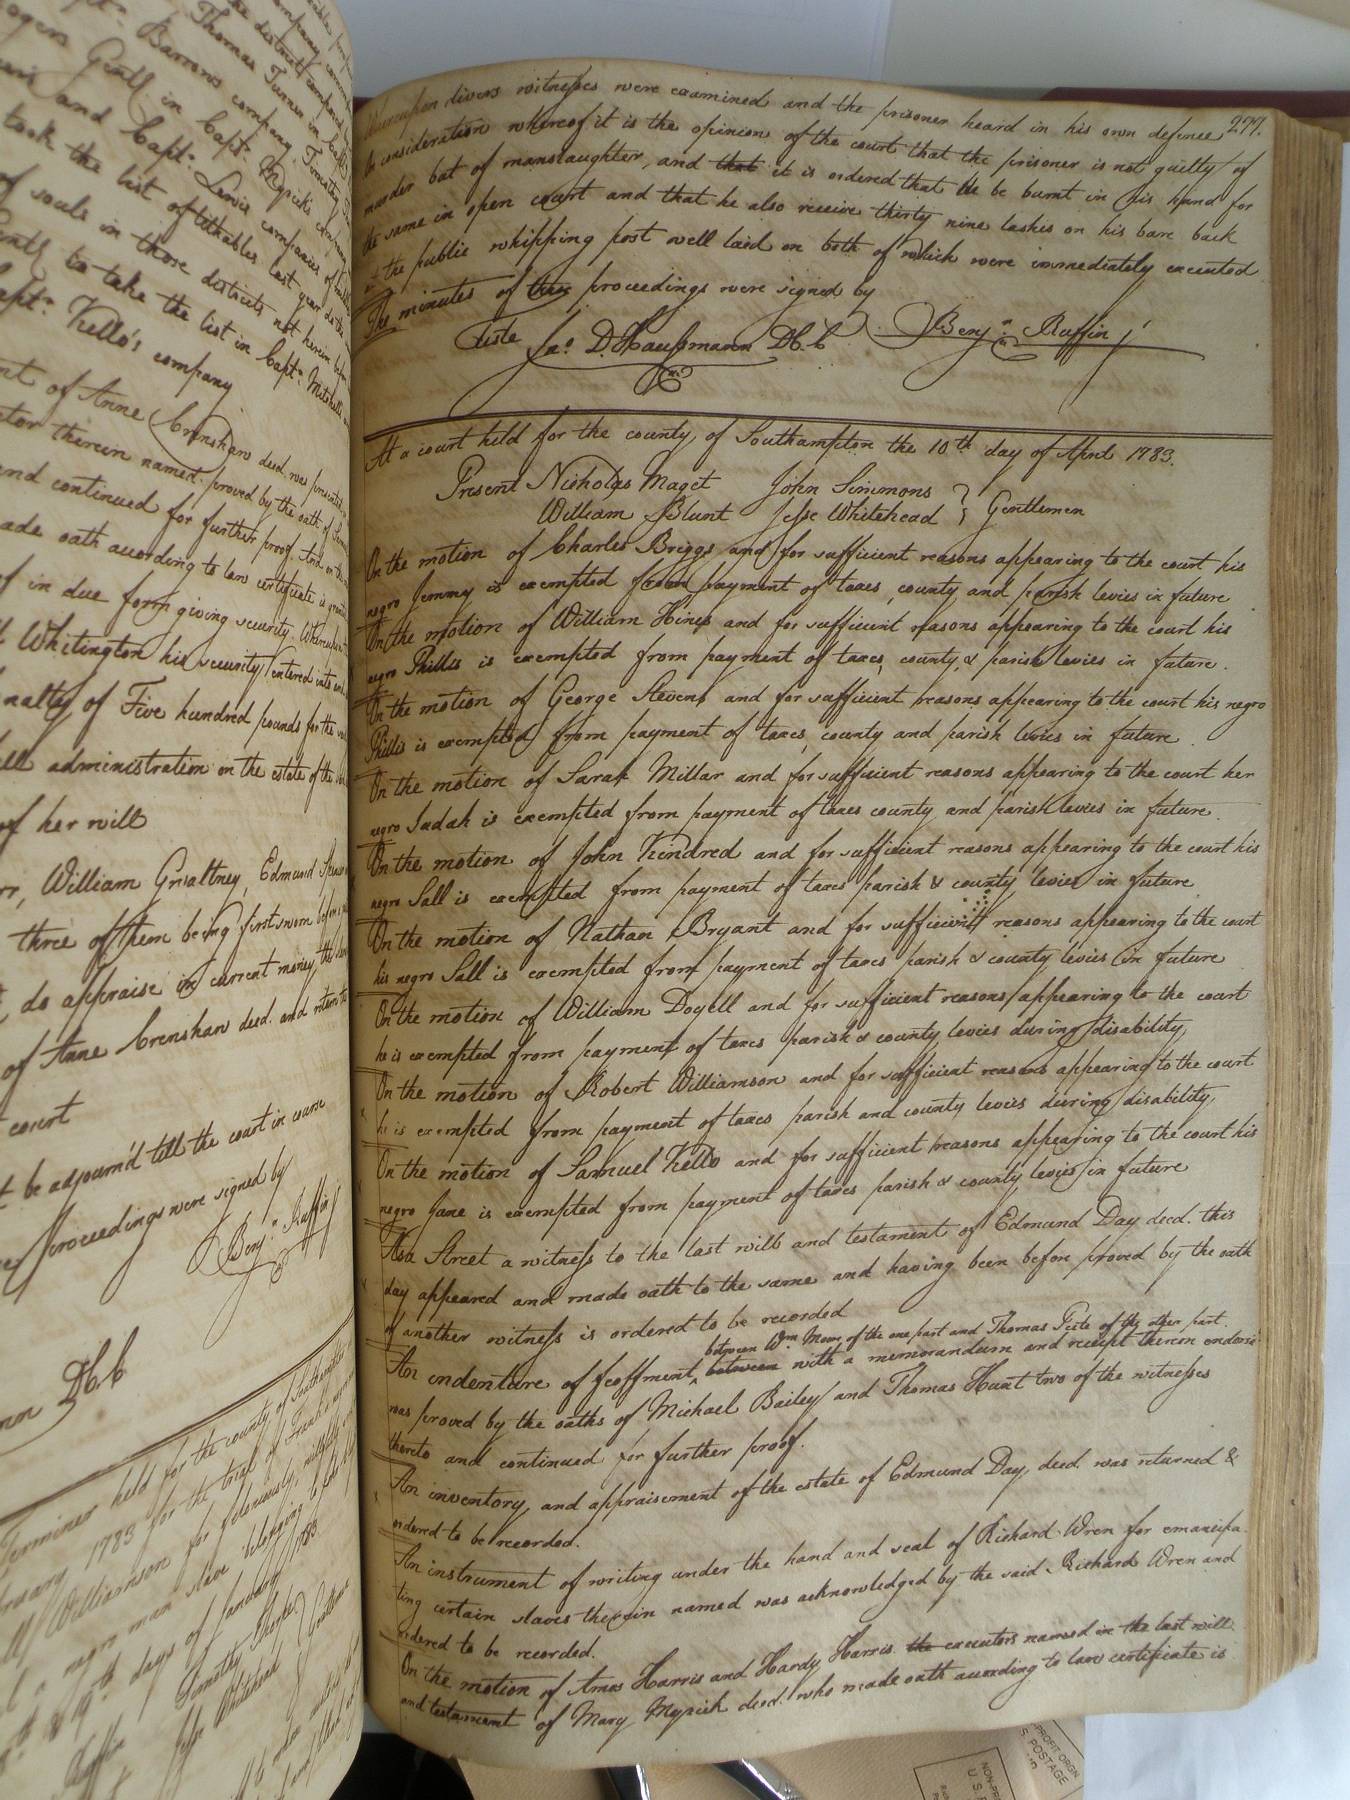 company
the district
Thomas Turner in Capt.
Barrows company, Timothy
Gentl in Capt. Myrick's company
and Capt. Lewis companies of
took the list of tithables last year do the
of souls in those districts not herein before
Gentl to take the list in Capt. Mitchell's
Capt. Kello's company
of Anne Crenshaw decd. was presented
therein named proved by the oath of
and continued for further proof. And on the
made oath according to law certificate is granted
of in due form giving security. Whereupon
Whitington his security entered into and
penalty of Five hundred pounds for the
administration on the estate of the
of her will
William Gwaltney, Edmund
three of them being first sworn before
do appraise in current money the
of Anne Crenshaw decd. and return
court
be adjourn'd till the court in course
proceedings were signed by
Benj.n Ruffin
D.C.C
held for the county of Southampton
1783 for the trial of
Williamson for feloniously, willfully
a negro man slave belonging to
days of January 1783.
Timothy Thorpe
Jesse Whitehead Gentlemen
277.
Whereupon divers witnesses were examined and the prisoner heard in his own defence
In consideration whereof it is the opinion of the court that the prisoner is not guilty of
murder but of manslaughter, and that it is ordered that he be burnt in his hand for
the same in open court and that he also receive thirty nine lashes on his bare back
at the public whipping post well laid on both of which were immediately executed
The minutes of these proceedings were signed by
Teste Ja.s D. Haussmann D.C.C Benj.n Ruffin
At a court held for the county of Southampton the 10th day of April 1783.
Present Nicholas Maget John Simmons
William Blunt Jesse Whitehead } Gentlemen
On the motion of Charles Briggs and for sufficient reasons appearing to the court his
negro Jemmy is exempted from payment of taxes, county and parish levies in future
On the motion of William Hines and for sufficient reasons appearing to the court his
negro Phillis is exempted from payment of taxes, county & parish levies in future.
On the motion of George Stevens and for sufficient reasons appearing to the court his negro
Phillis is exempted from payment of taxes, county and parish levies in future.
On the motion of Sarah Millar and for sufficient reasons appearing to the court her
negro Judah is exempted from payment of taxes county and parish levies in future.
On the motion of John Kindred and for sufficient reasons appearing to the court his
negro Sall is exempted from payment of taxes parish & county levies in future
On the motion of Nathan Bryant and for sufficient reasons appearing to the court
his negro Sall is exempted from payment of taxes parish & county levies in future
On the motion of William Doyell and for sufficient reasons appearing to the court
he is exempted from payment of taxes parish & county levies during disability,
On the motion of Robert Williamson and for sufficient reasons appearing to the court
he is exempted from payment of taxes parish and county levies during disability,
On the motion of Samuel Kello and for sufficient reasons appearing to the court his
negro Jane is exempted from payment of taxes parish & county levies in future
Asa Street a witness to the last will and testament of Edmund Day decd. this
day appeared and made oath to the same and having been before proved by the oath
of another witness is ordered to be recorded
between Wm. Momy of the one part and Thomas Peete of the other part.
An indenture of feoffment, between with a memorandum and receipt thereon endorsd
was proved by the oaths of Michael Bailey and Thomas Hunt two of the witnesses
thereto and continued for further proof.
An inventory and appraisement of the estate of Edmund Day, decd. was returned &
ordered to be recorded.
An instrument of writing under the hand and seal of Richard Wren for emancipa
ting certain slaves therein named was acknowledged by the said Richard Wren and
ordered to be recorded.
On the motion of Amos Harris and Hardy Harris the executors named in the last will
and testament of Mary Myrick decd. who made oath according to law certificate is
PROFIT ORGN
S. POSTAGE
NON-PR
U.S.